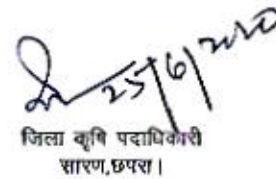 25/6/2020
जिला कृषि पदाधिकारी
सारण,छपरा।